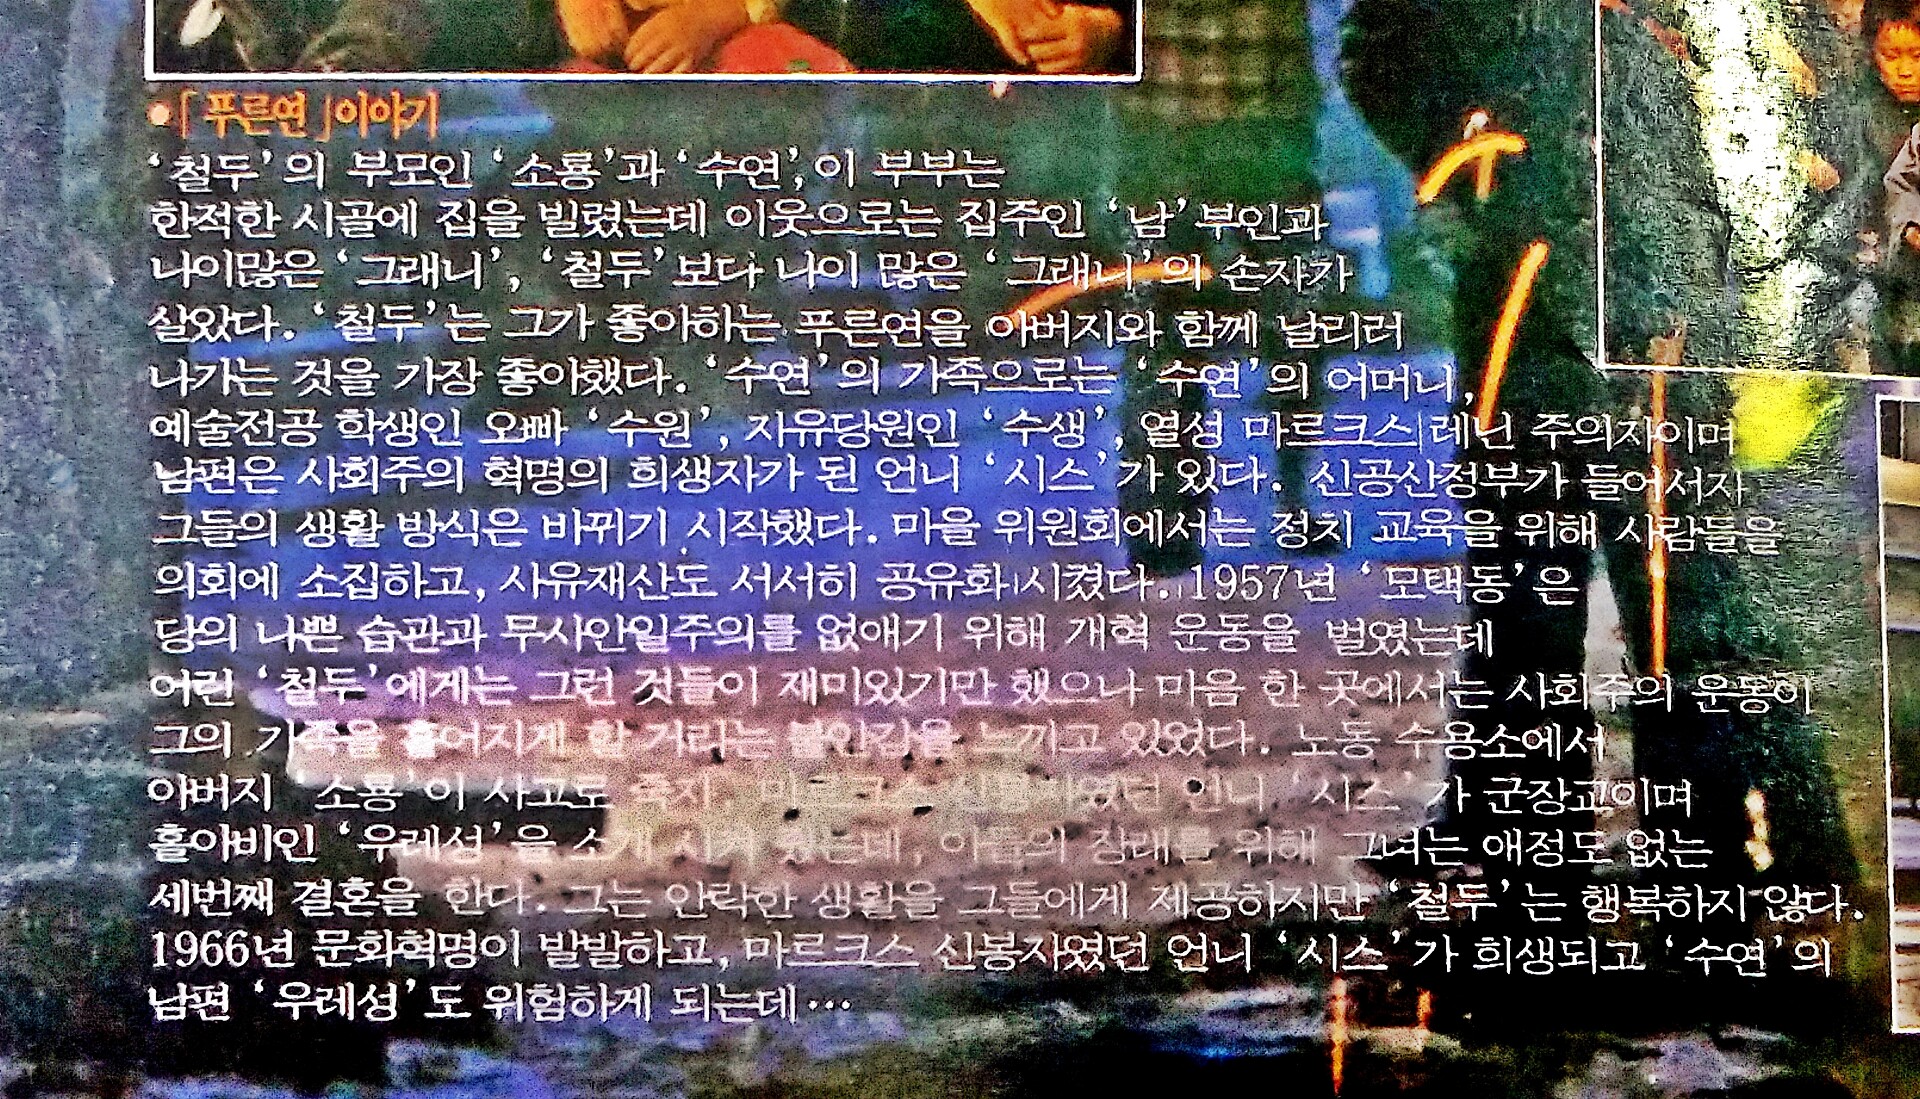 •「푸른연」이야기
‘철두’의 부모인 ‘소룡’과 ‘수연’, 이 부부는
한적한 시골에 집을 빌렸는데 이웃으로는 집주인 ‘남’부인과
나이많은 ‘그래니’, ‘철두’보다 나이 많은 ‘그래니’의 손자가
살았다. ‘철두’는 그가 좋아하는 푸른연을 아버지와 함께 날리러
나가는 것을 가장 좋아했다. ‘수연’의 가족으로는 ‘수연’의 어머니,
예술전공 학생인 오빠 ‘수원’, 자유당원인 ‘수생’, 열성 마르크스레닌 주의자이며
남편은 사회주의 혁명의 희생자가 된 언니 ‘시스’가 있다. 신공산정부가 들어서자
그들의 생활 방식은 바뀌기 시작했다. 마을 위원회에서는 정치 교육을 위해 사람들을
의회에 소집하고, 사유재산도 서서히 공유화시켰다. 1957년 ‘모택동’은
당의 나쁜 습관과 무사안일주의를 없애기 위해 개혁 운동을 벌였는데
어린 ‘철두’에게는 그런 것들이 재미있기만 했으나 마음 한 곳에서는 사회주의 운동이
그의 가족을 흩어지게 할 거라는 불안감을 느끼고 있었다. 노동 수용소에서
아버지 ‘소룡’이 사고로 언니 ‘시스’가 군장교이며
홀아비인 ‘우레성’을 소개 이들의 장래를 위해 그녀는 애정도 없는
세번째 결혼을 한다. 그는 안락한 생활을 그들에게 제공하지만 ‘철두’는 행복하지 않다.
1966년 문화혁명이 발발하고, 마르크스 신봉자였던 언니 ‘시스’가 희생되고 ‘수연’의
남편 ‘우레성’도 위험하게 되는데…